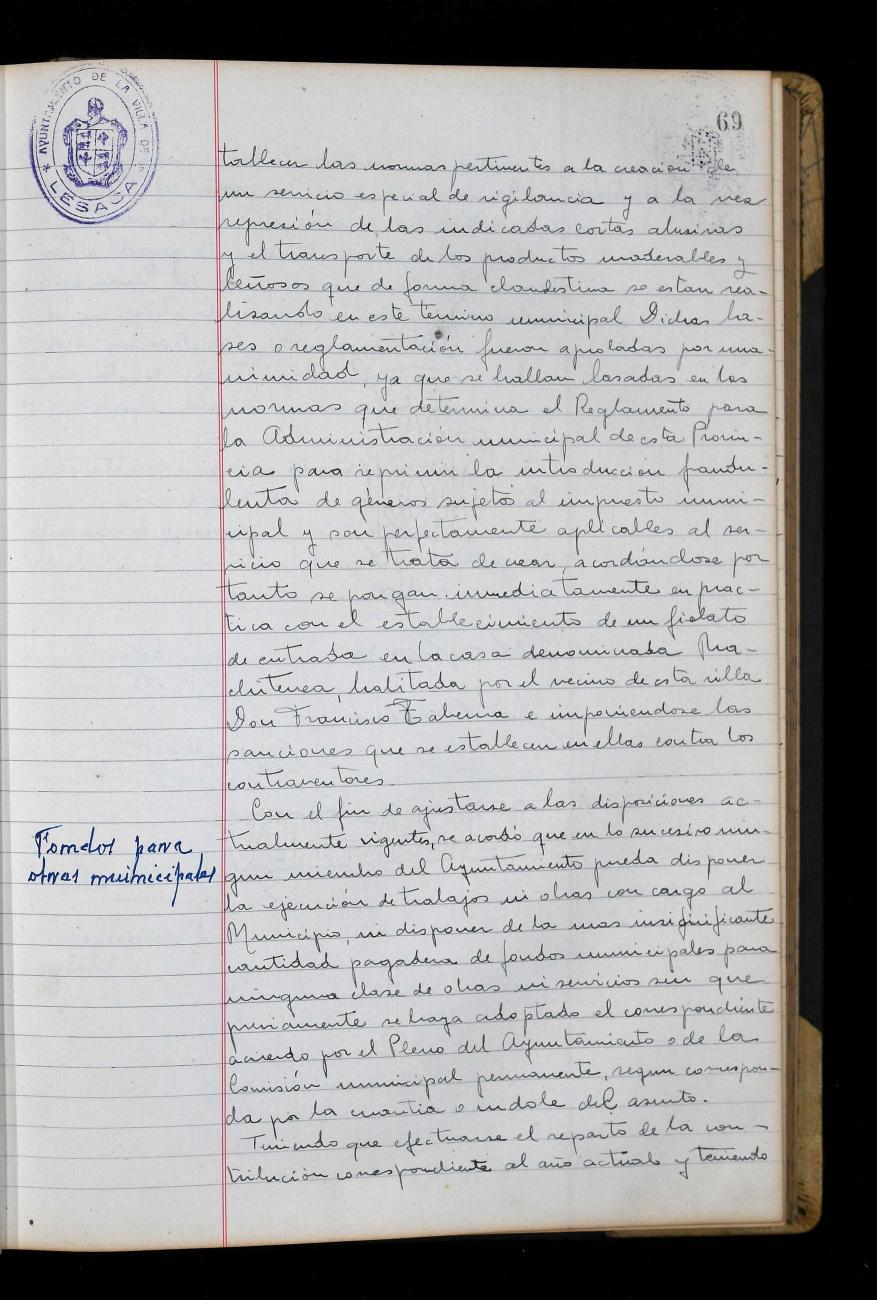 AYUNTAMIENTO DE LA VILLA DE
* LESACA *
69
tablecer las normas pertinentes a la creación de
un servicio especial de vigilancia y a la vez
represión de las indicadas cortas abusivas
y el transporte de los productos maderables y
leñosos que de forma clandestina se estan rea-
lizando en este término municipal Dichas ba-
ses o reglamentación fueron aprobadas por una-
nimidad, ya que se hallan basadas en las
normas que determina el Reglamento para
la Administración municipal de esta Provin-
cia para reprimir la introducción fraudu-
lenta de géneros sujetos al impuesto muni-
cipal y son perfectamente aplicables al ser-
vicio que se trata de crear, acordándose por
tanto se pongan inmediatamente en prac-
tica con el establecimiento de un fielato
de entrada en la casa denominada
habitada por el vecino de esta villa
Don Francisco Taberna e imponiendose las
sanciones que se establecen en ellas contra los
contraventores.
Con el fin de ajustarse a las disposiciones ac-
tualmente vigentes, se acordó que en lo sucesivo nin-
Fondos para
obras municipales
gun miembro del Ayuntamiento pueda disponer
la ejecución de trabajos ni obras con cargo al
Municipio, ni disponer de la mas insignificante
cantidad pagadera de fondos municipales para
ninguna clase de obras ni servicios sin que
previamente se haya adoptado el correspondiente
acuerdo por el Pleno del Ayuntamiento o de la
Comisión municipal permanente, segun correspon-
da por la cuantia o indole del asunto.
Teniendo que efectuarse el reparto de la con-
tribución correspondiente al año actual y teniendo